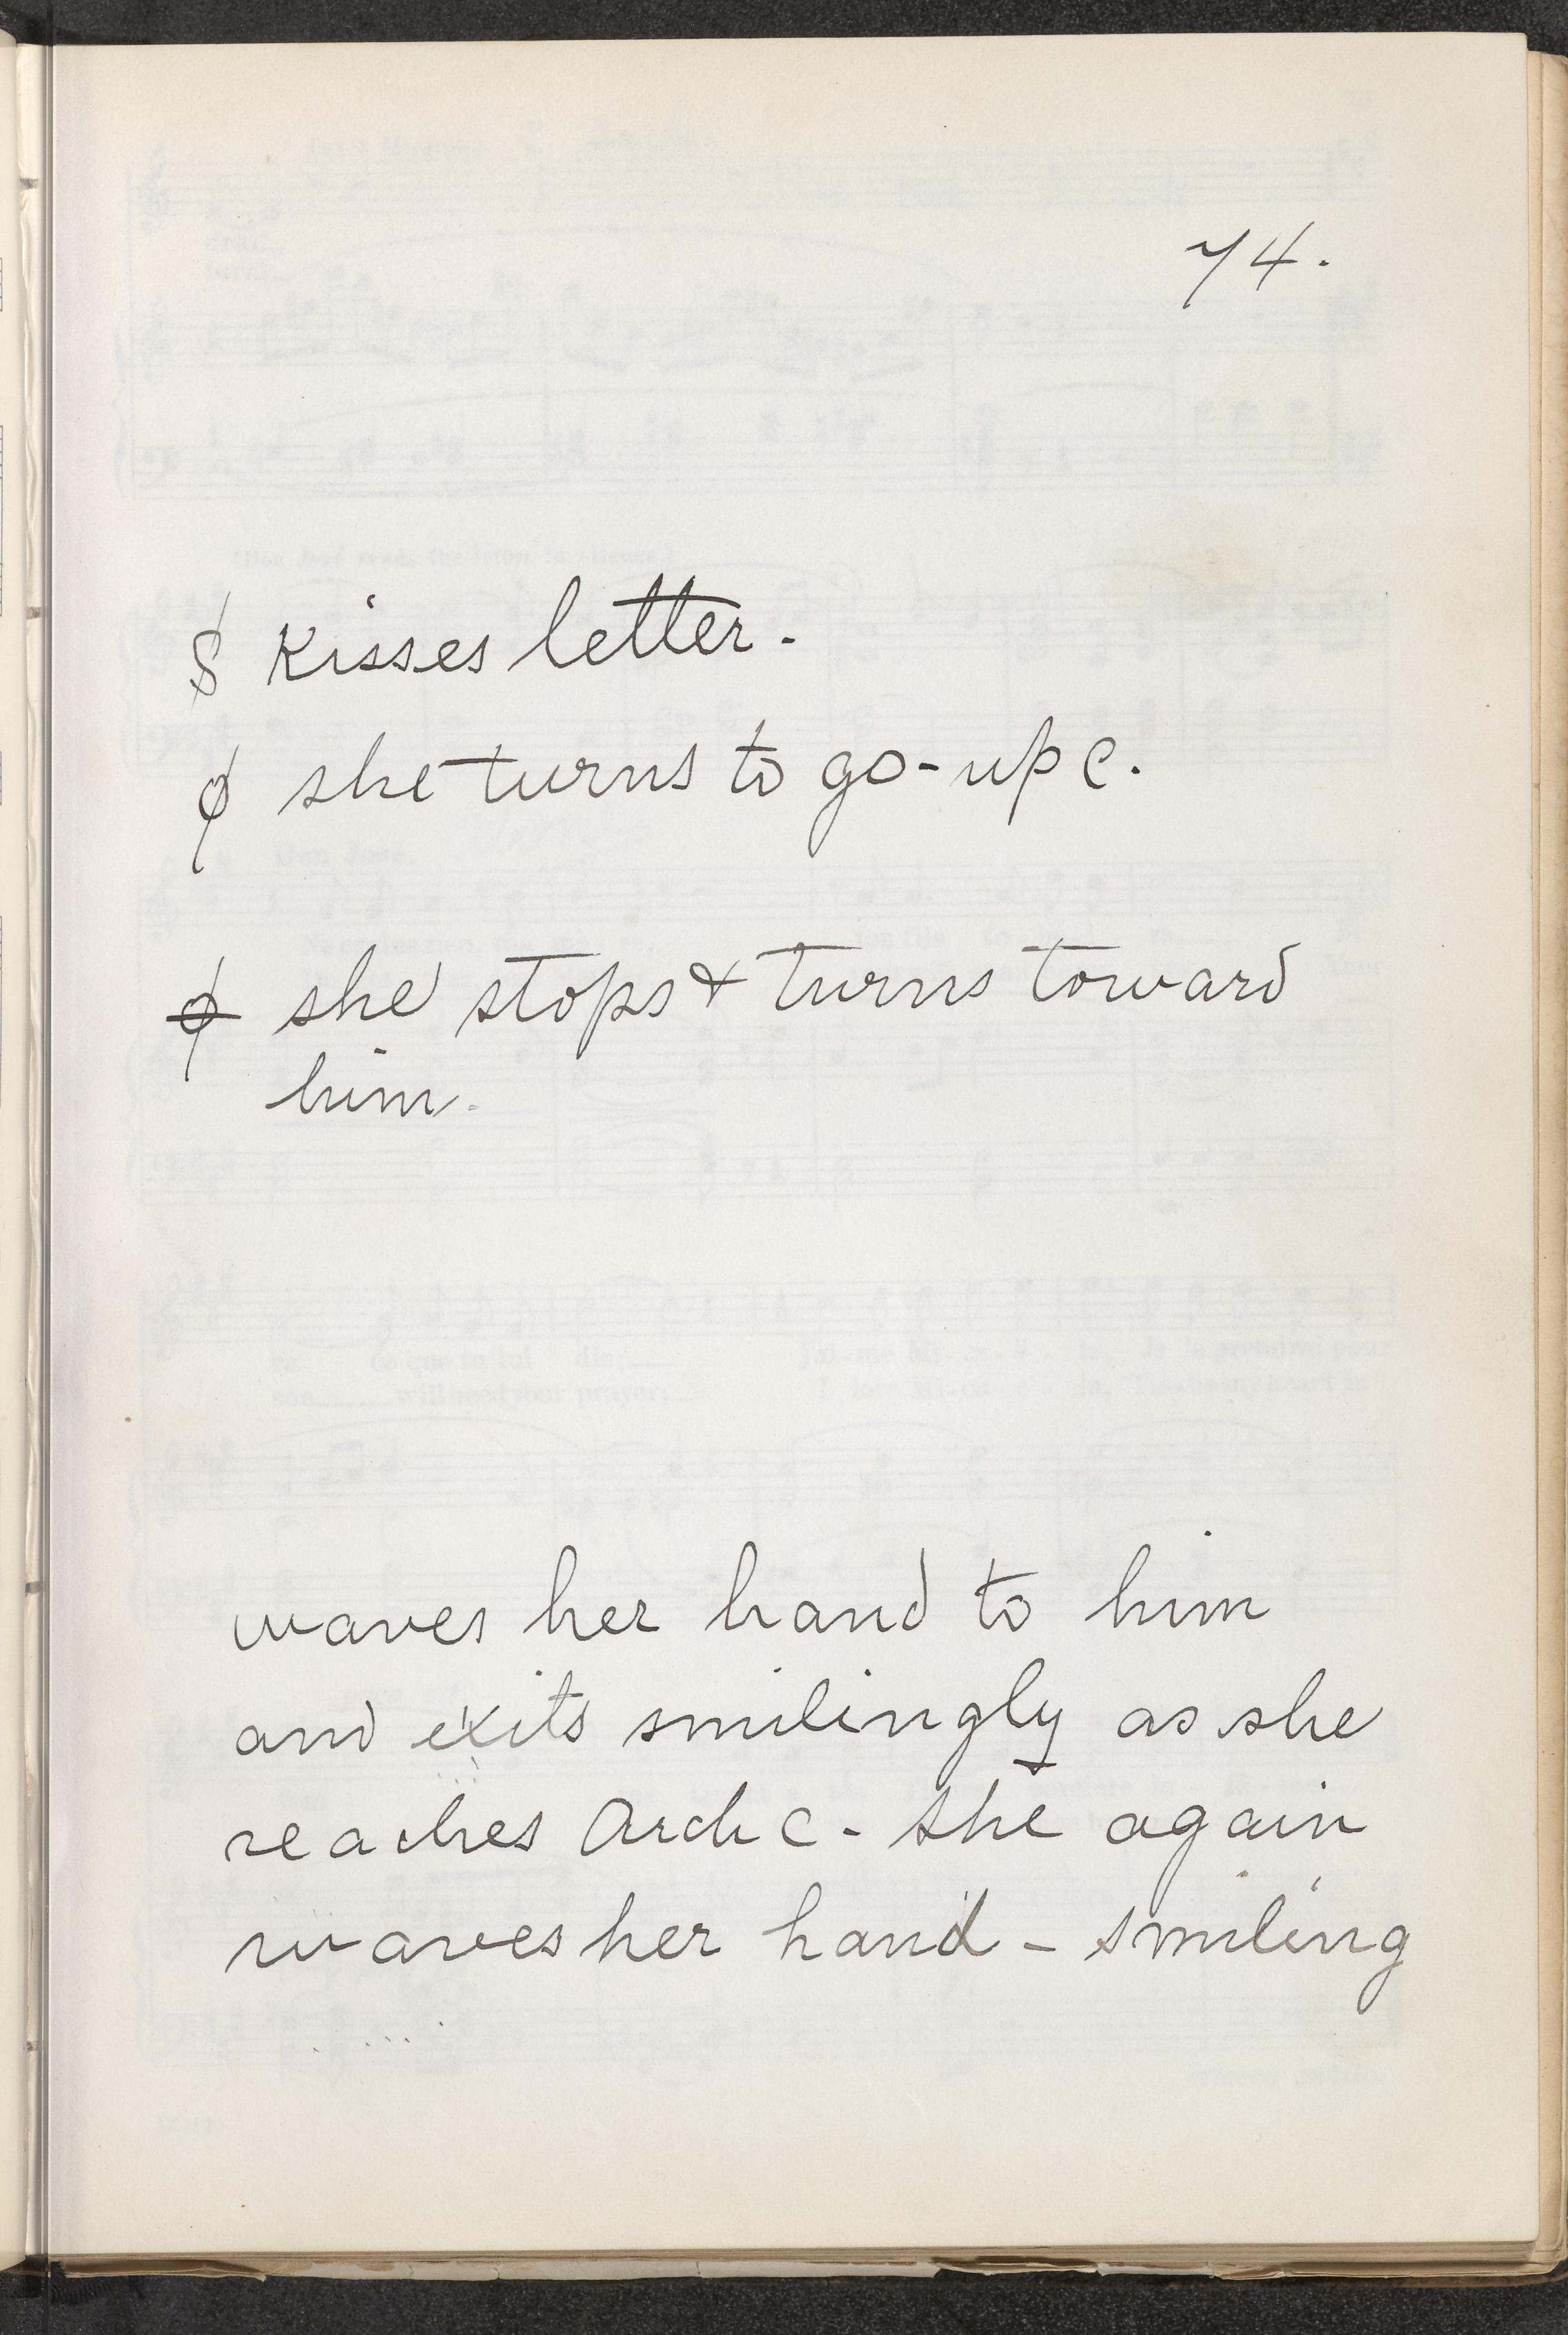 74.
$ Kisses letter.
ϕ she turns to go - up C.
ϕ she stops & turns toward
him.
waves her hand to him
and exits smilingly as she
reaches Arch C - she again
waves her hand - smiling